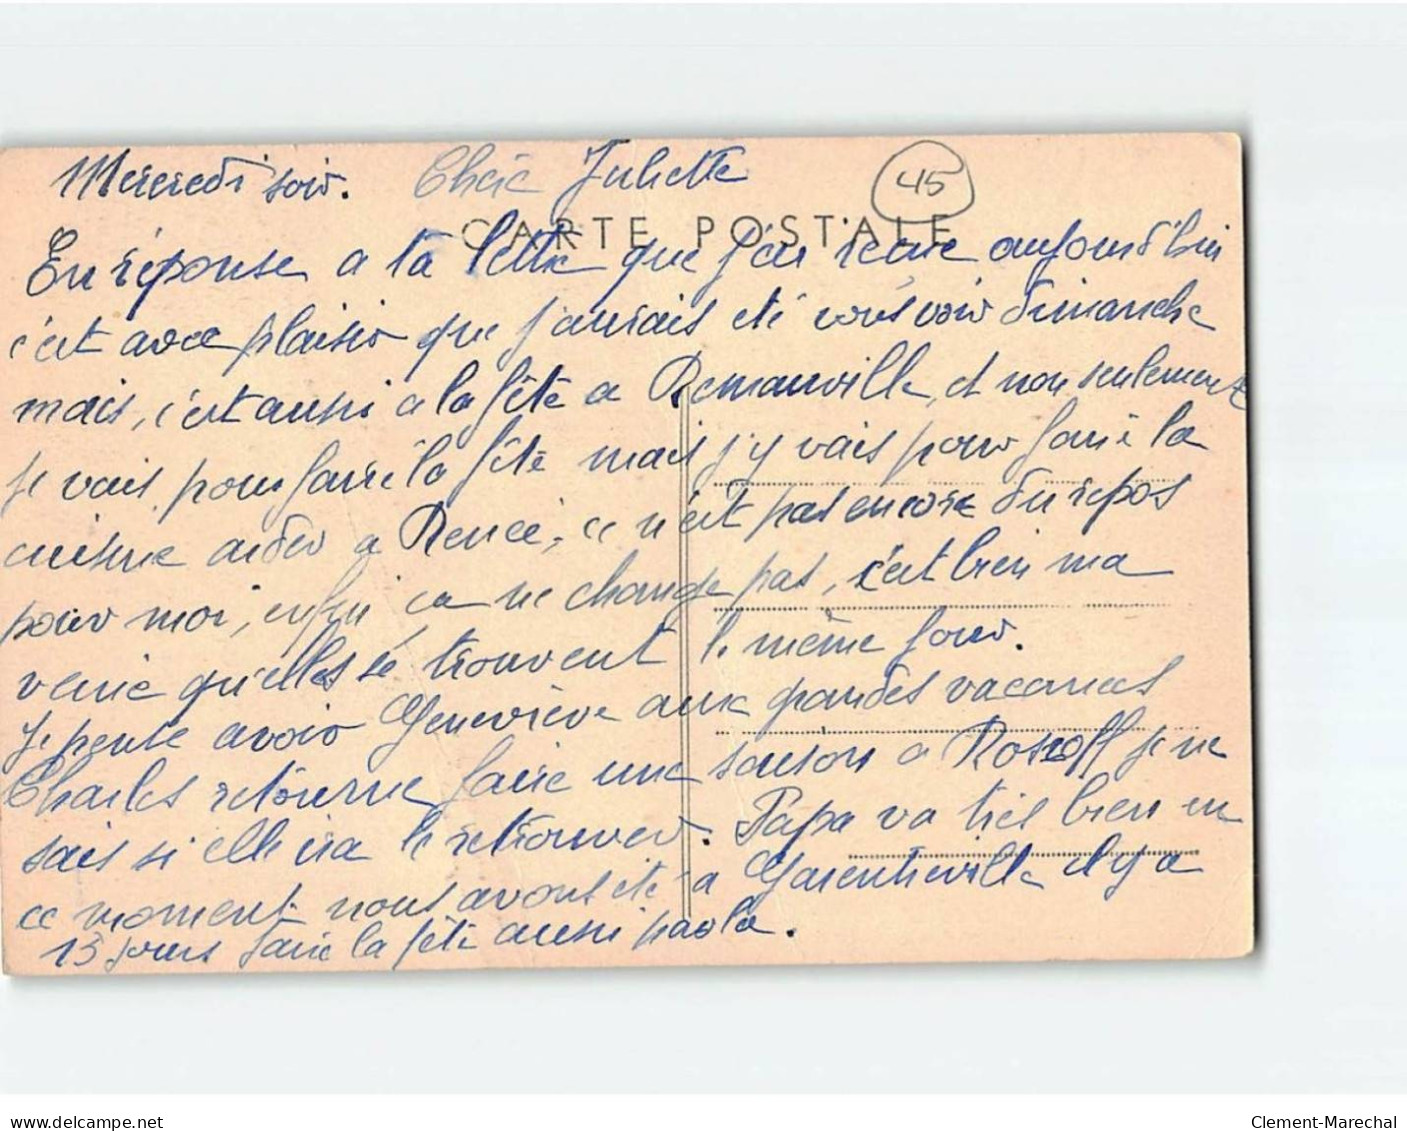 Mercredi soir. Chère Juliette
45
CARTE POSTALE
En réponse a ta lettre que j'ai recue aujourd'hui
c'est avec plaisir que j'aurais été vous voir dimanche
mais, c'est aussi a la fête a Remauville, et non seulement
je vais pour faire la fête mais j'y vais pour faire la
cuisine aider a Renée, ce n'est pas encore du repos
pour moi, enfin ca ne change pas, c'est bien ma
veine qu'elles se trouvent le même jour.
Je pense avoir Geneviève aux grandes vacances
Charles retourne faire une saison a Roscoff je ne
sais si elle ira le retrouver. Papa va très bien en
ce moment nous avons été a Garentreville il y a
15 jours faire la fête aussi par la.
delcampe.net
Clement-Marechal